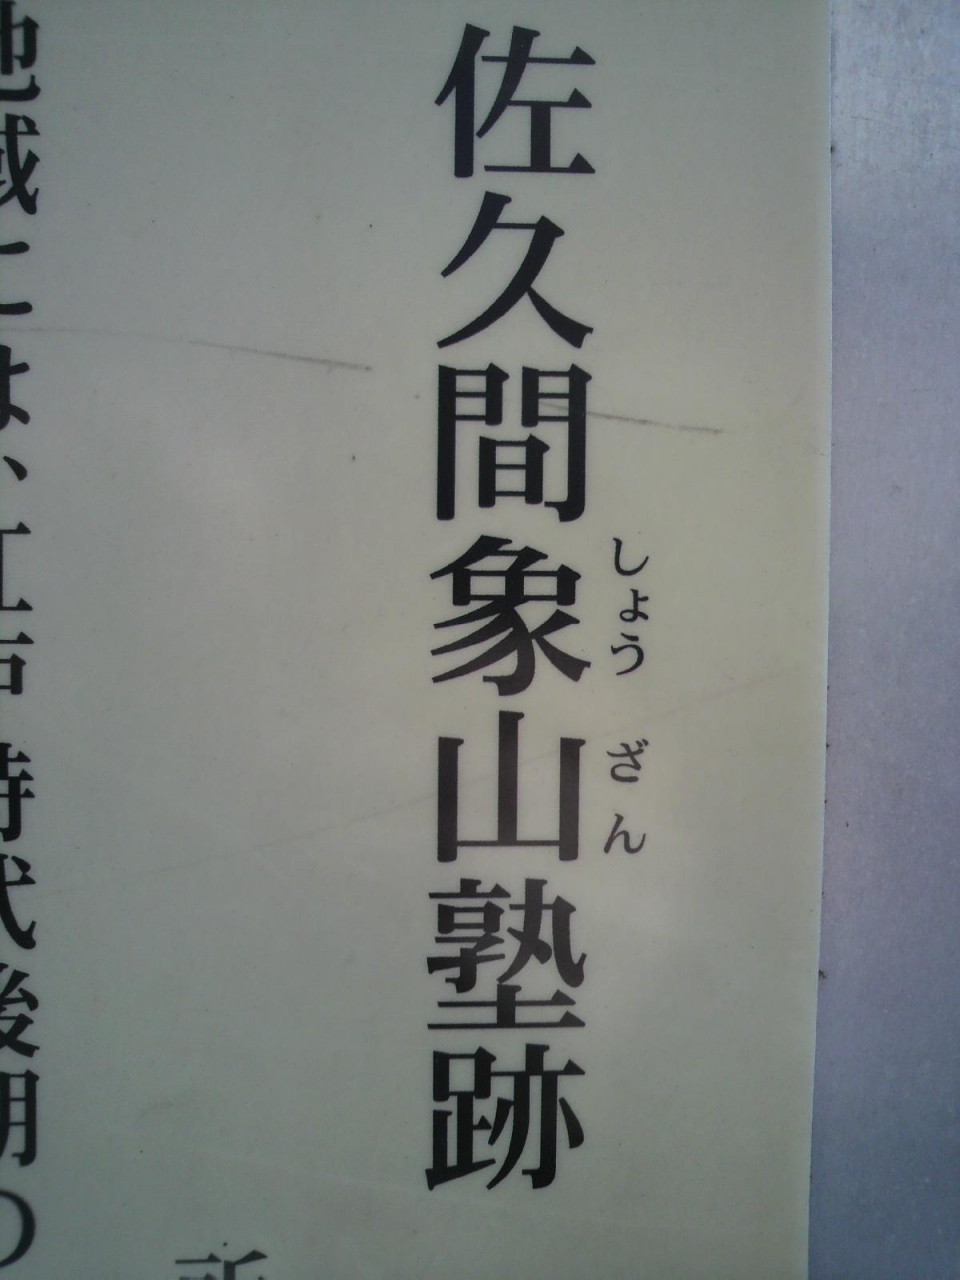 佐久間象山塾跡
しょうざん
所
地域には、江戸時代後期の